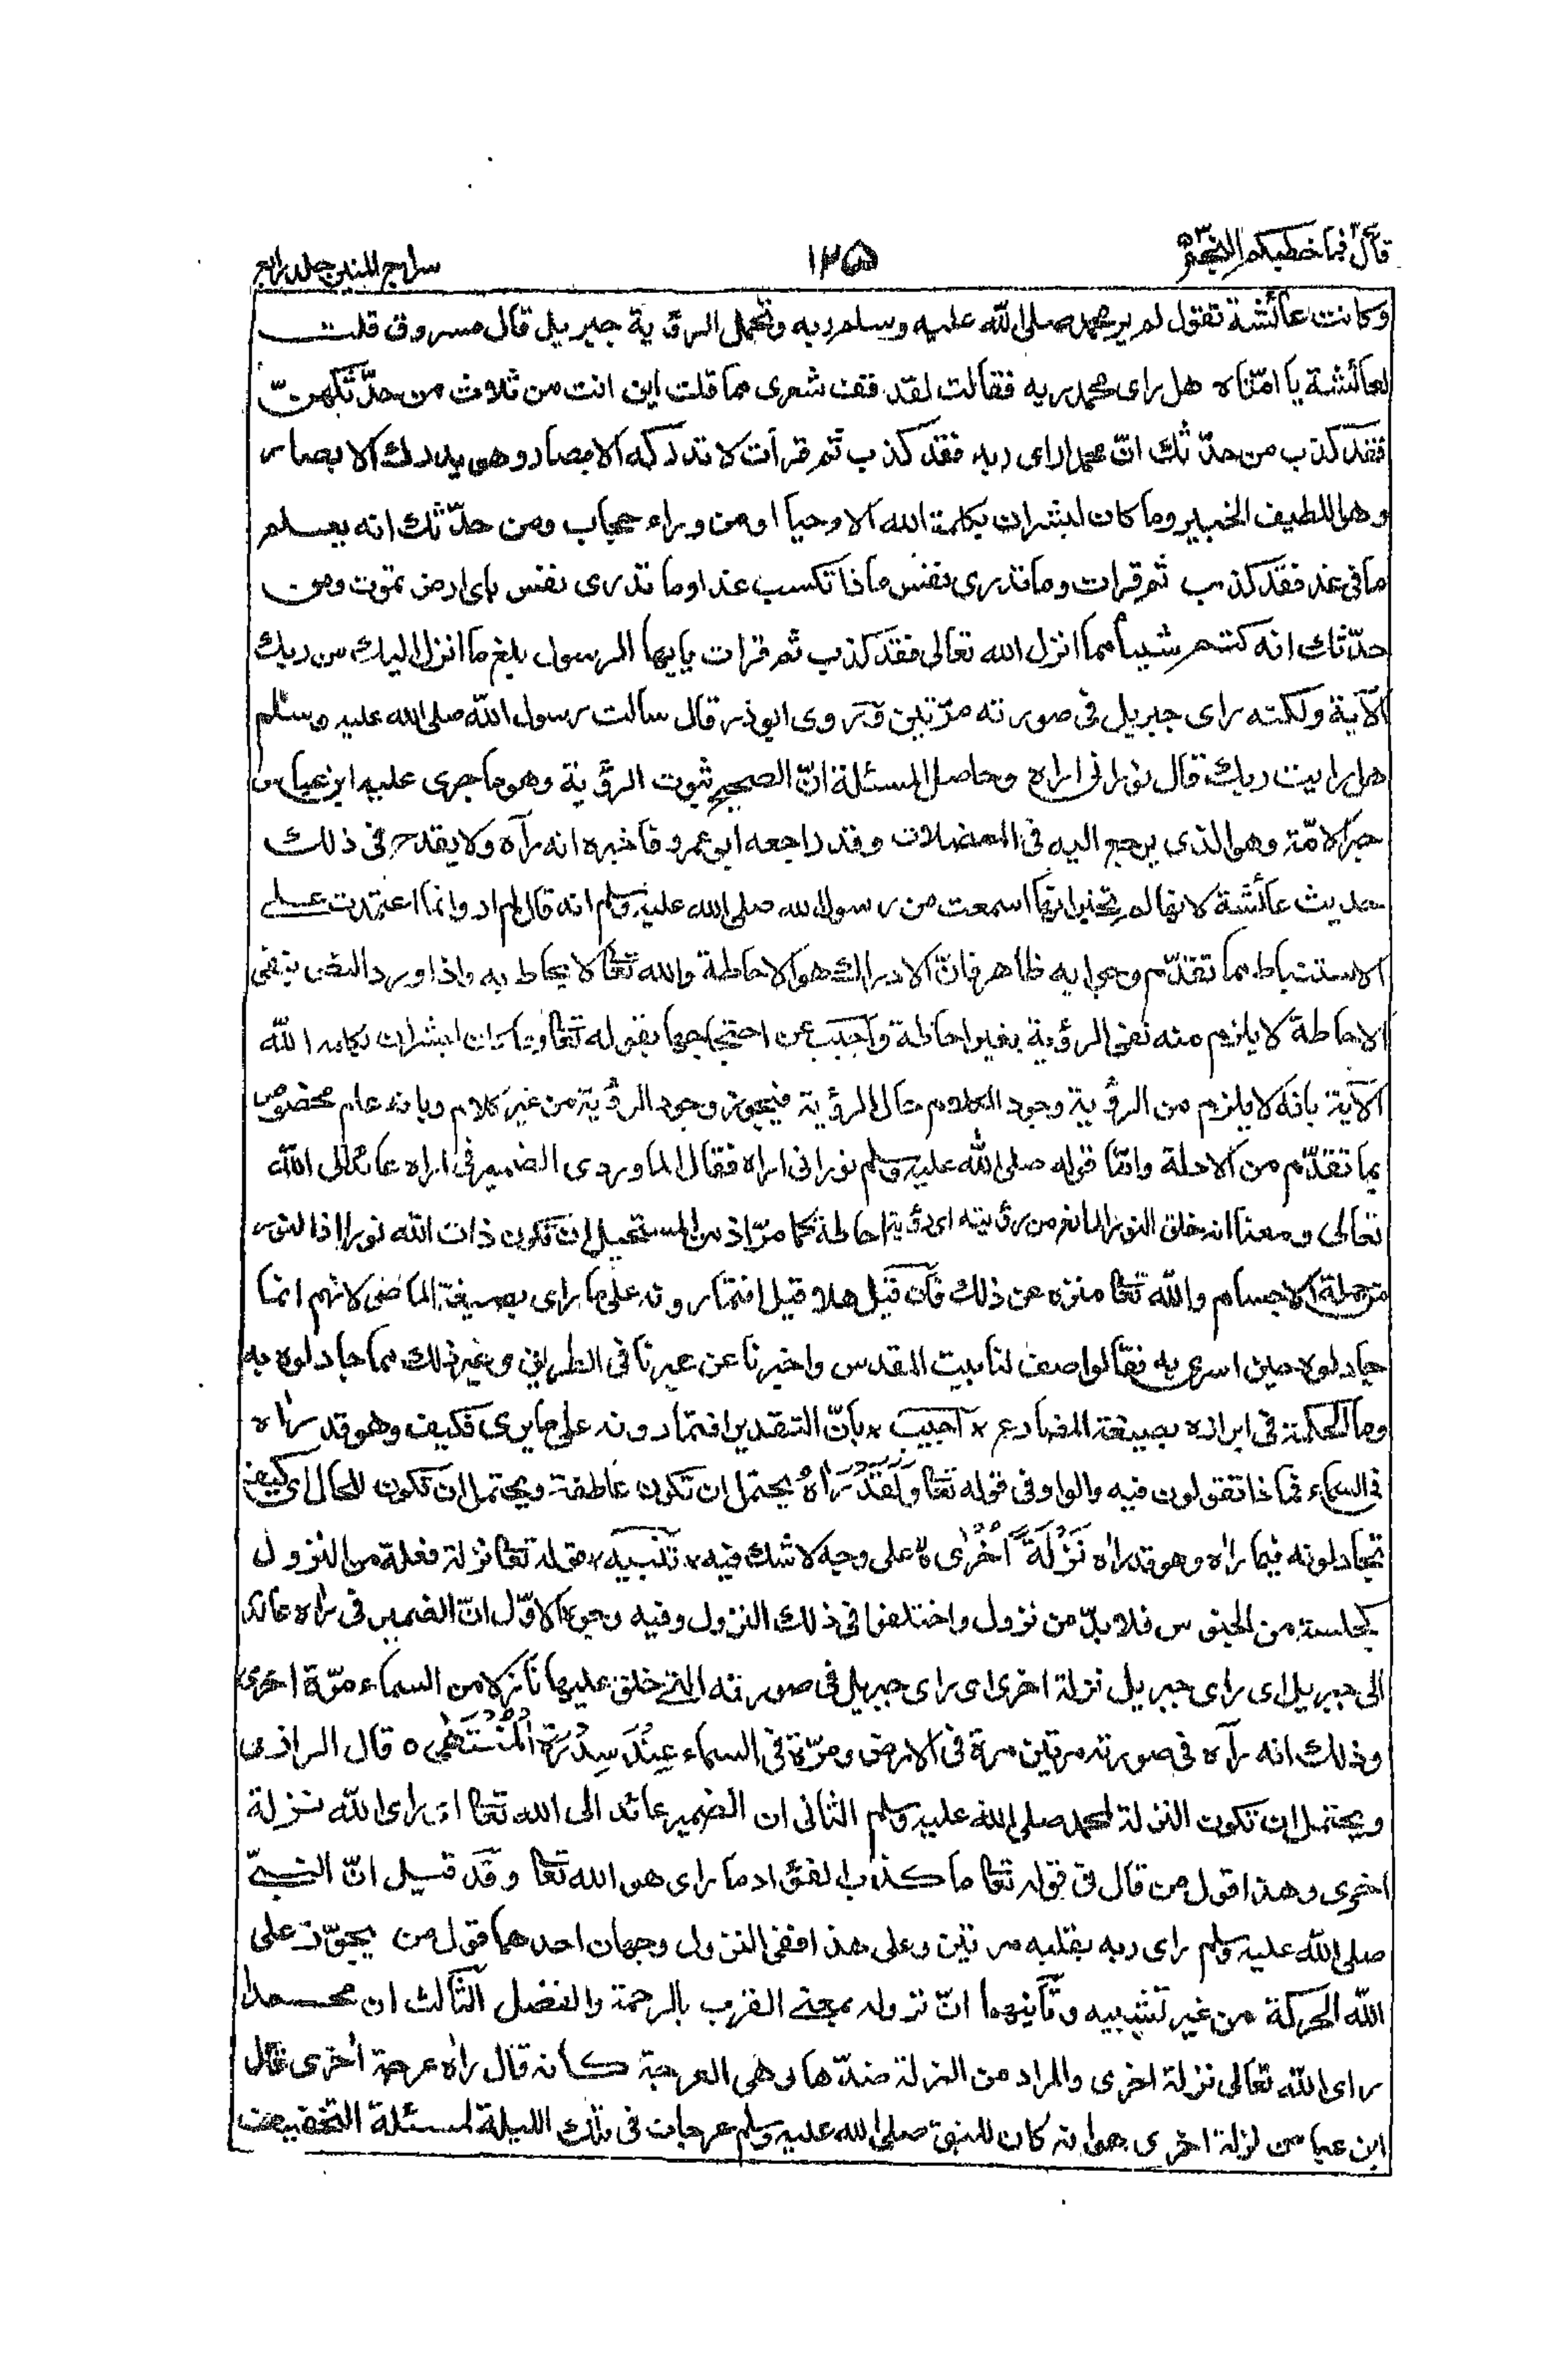 قال فما خطبكم النجم ٥٣
١٢٥
سراج المنير جلد رابع
وكانت عائشة تقول لم ير محمد صلى الله عليه وسلم ربه وتحمل الرؤية جبريل قال مسروق قلت
لعائشة يا امتاه هل راى محمد ربه فقالت لقد قف شعرى مما قلت اين انت من ثلاث من حدّثكهنّ
فقد كذب من حدّثك انّ محمدا راى ربه فقد كذب ثم قرأت لا تدركه الابصار وهو يدرك الابصار
وهو اللطيف الخبير وما كان لبشر ان يكلمه الله الا وحيا او من وراء حجاب ومن حدّثك انه يعلم
ما فى غد فقد كذب ثم قرات وما تدرى نفس ماذا تكسب غدا وما تدرى نفس باى ارض تموت ومن
حدّثك انه كتم شيأ مما انزل الله تعالى فقد كذب ثم قرات يايها الرسول بلغ ما انزل اليك من ربك
الآية ولكنه راى جبريل فى صورته مرّتين وروى ابوذر قال سالت رسول الله صلى الله عليه وسلم
هل رايت ربك قال نورا نى اراه وحاصل المسئلة انّ الصحيح ثبوت الرؤية وهو ما جرى عليه ابن عباس
حبر الامّة وهو الذى يرجع اليه فى المعضلات وقد راجعه ابو عمرو فاخبره انه رآه ولا يقدح فى ذلك
حديث عائشة لانها لم تخبر انها سمعت من رسول الله صلى الله عليه وسلم انه قال لم ار وانما اعتمدت على
الاستنباط مما تقدّم وجوابه ظاهر فانّ الادراك هو الاحاطة والله تعالى لا يحاط به واذا ورد النص بنفى
الاحاطة لا يلزم منه نفى الرؤية بغير احاطة واجيب عن احتجاجها بقوله تعالى وما كان لبشر ان يكلمه الله
الآية بانه لا يلزم من الرؤية وجود الكلام حال الرؤية فيجوز وجود الرؤية من غير كلام وبانه عام مخصوص
بما تقدّم من الادلة وامّا قوله صلى الله عليه وسلم نورا نى اراه فقال الماوردى الضمير فى اراه عائد الى الله
تعالى ومعناه انه خلق النور المانع من رؤيته اى رؤية احاطة كما مرّ اذ من المستحيل ان تكون ذات الله نورا اذ النور
من جملة الاجسام والله تعالى منزه عن ذلك فان قيل هلا قيل افتمارونه على ما راى بصيغة الماضى لانهم انما
جادلوه حين اسرى به فقالوا صف لنا بيت المقدس واخبرنا عن عيرنا فى الطريق وغير ذلك مما جادلوه به
وما الحكمة فى ابرازه بصيغة المضارع * اجيب * بانّ التقدير افتمارونه على ما يرى فكيف وهو قد راٰه
فى السماء فماذا تقولون فيه والواو فى قوله تعالى وَلَقَدْ رَاٰهُ يحتمل ان تكون عاطفة ويحتمل ان تكون للحال اى كيف
تجادلونه فيما راٰه وهو قد راٰه نَزْلَةً اُخْرٰى ۵ على وجه لا شك فيه * تنبيه * قوله تعالى نزلة فعلة من النزول
كجلسة من الجلوس فلا بدّ من نزول واختلفوا فى ذلك النزول وفيه وجوه الاوّل انّ الضمير فى راٰه عائد
الى جبريل اى راى جبريل نزلة اخرى اى راى جبريل فى صورته التى خلق عليها نازلا من السماء مرّة اخرى
وذلك انه رآه فى صورته مرتين مرة فى الارض ومرّة فى السماء عِنْدَ سِدْرَةِ الْمُنْتَهٰى ۵ قال الرازى
ويحتمل ان تكون النزلة لمحمد صلى الله عليه وسلم الثانى ان الضمير عائد الى الله تعالى اى راى الله نزلة
اخرى وهذا قول من قال فى قوله تعالى ما كذب الفؤاد ما راى هو الله تعالى وقد قيل انّ النبىّ
صلى الله عليه وسلم راى ربه بقلبه مرتين وعلى هذا ففى النزول وجهان احدهما قول من يجوّز على
الله الحركة من غير تشبيه وثانيهما انّ نزوله بمعنى القرب بالرحمة والفضل الثالث ان محمدا
راى الله تعالى نزلة اخرى والمراد من النزلة ضدّها وهى العرجة كانه قال راٰه عرجة اخرى قال
ابن عباس نزلة اخرى هو انه كان للنبى صلى الله عليه وسلم عرجات فى تلك الليلة لمسئلة التخفيف